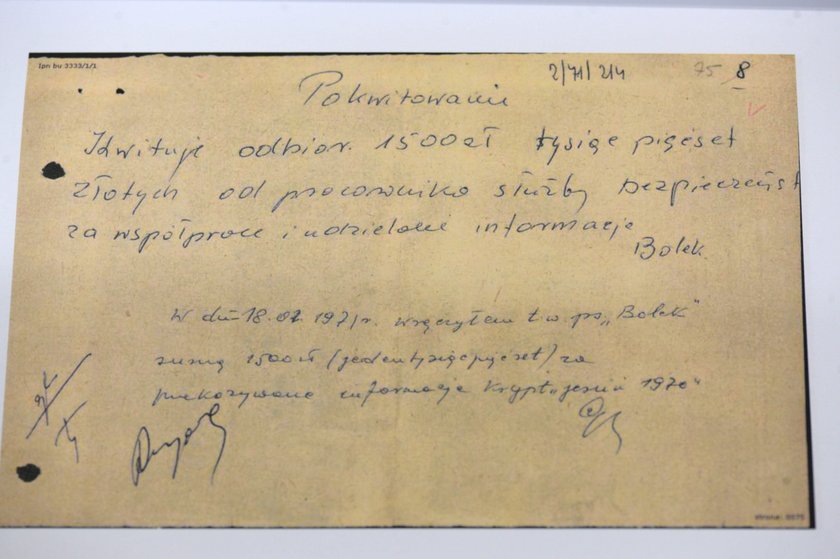 Ipn bu 3333/1/1
2/71/214 75 8
Pokwitowanie
Kwituje odbior. 1500 zł tysiąc pięćset
Złotych od pracownika służby bezpieczeńst
za współprace i udzielone informacje
Bolek
W dniu 18.01.1971r. wręczyłem t.w. ps. „Bolek"
sumę 1500 zł (jeden tysiąc pięćset) za
przekazywane informacje krypt. „Jesień 1970"
strona: 0075